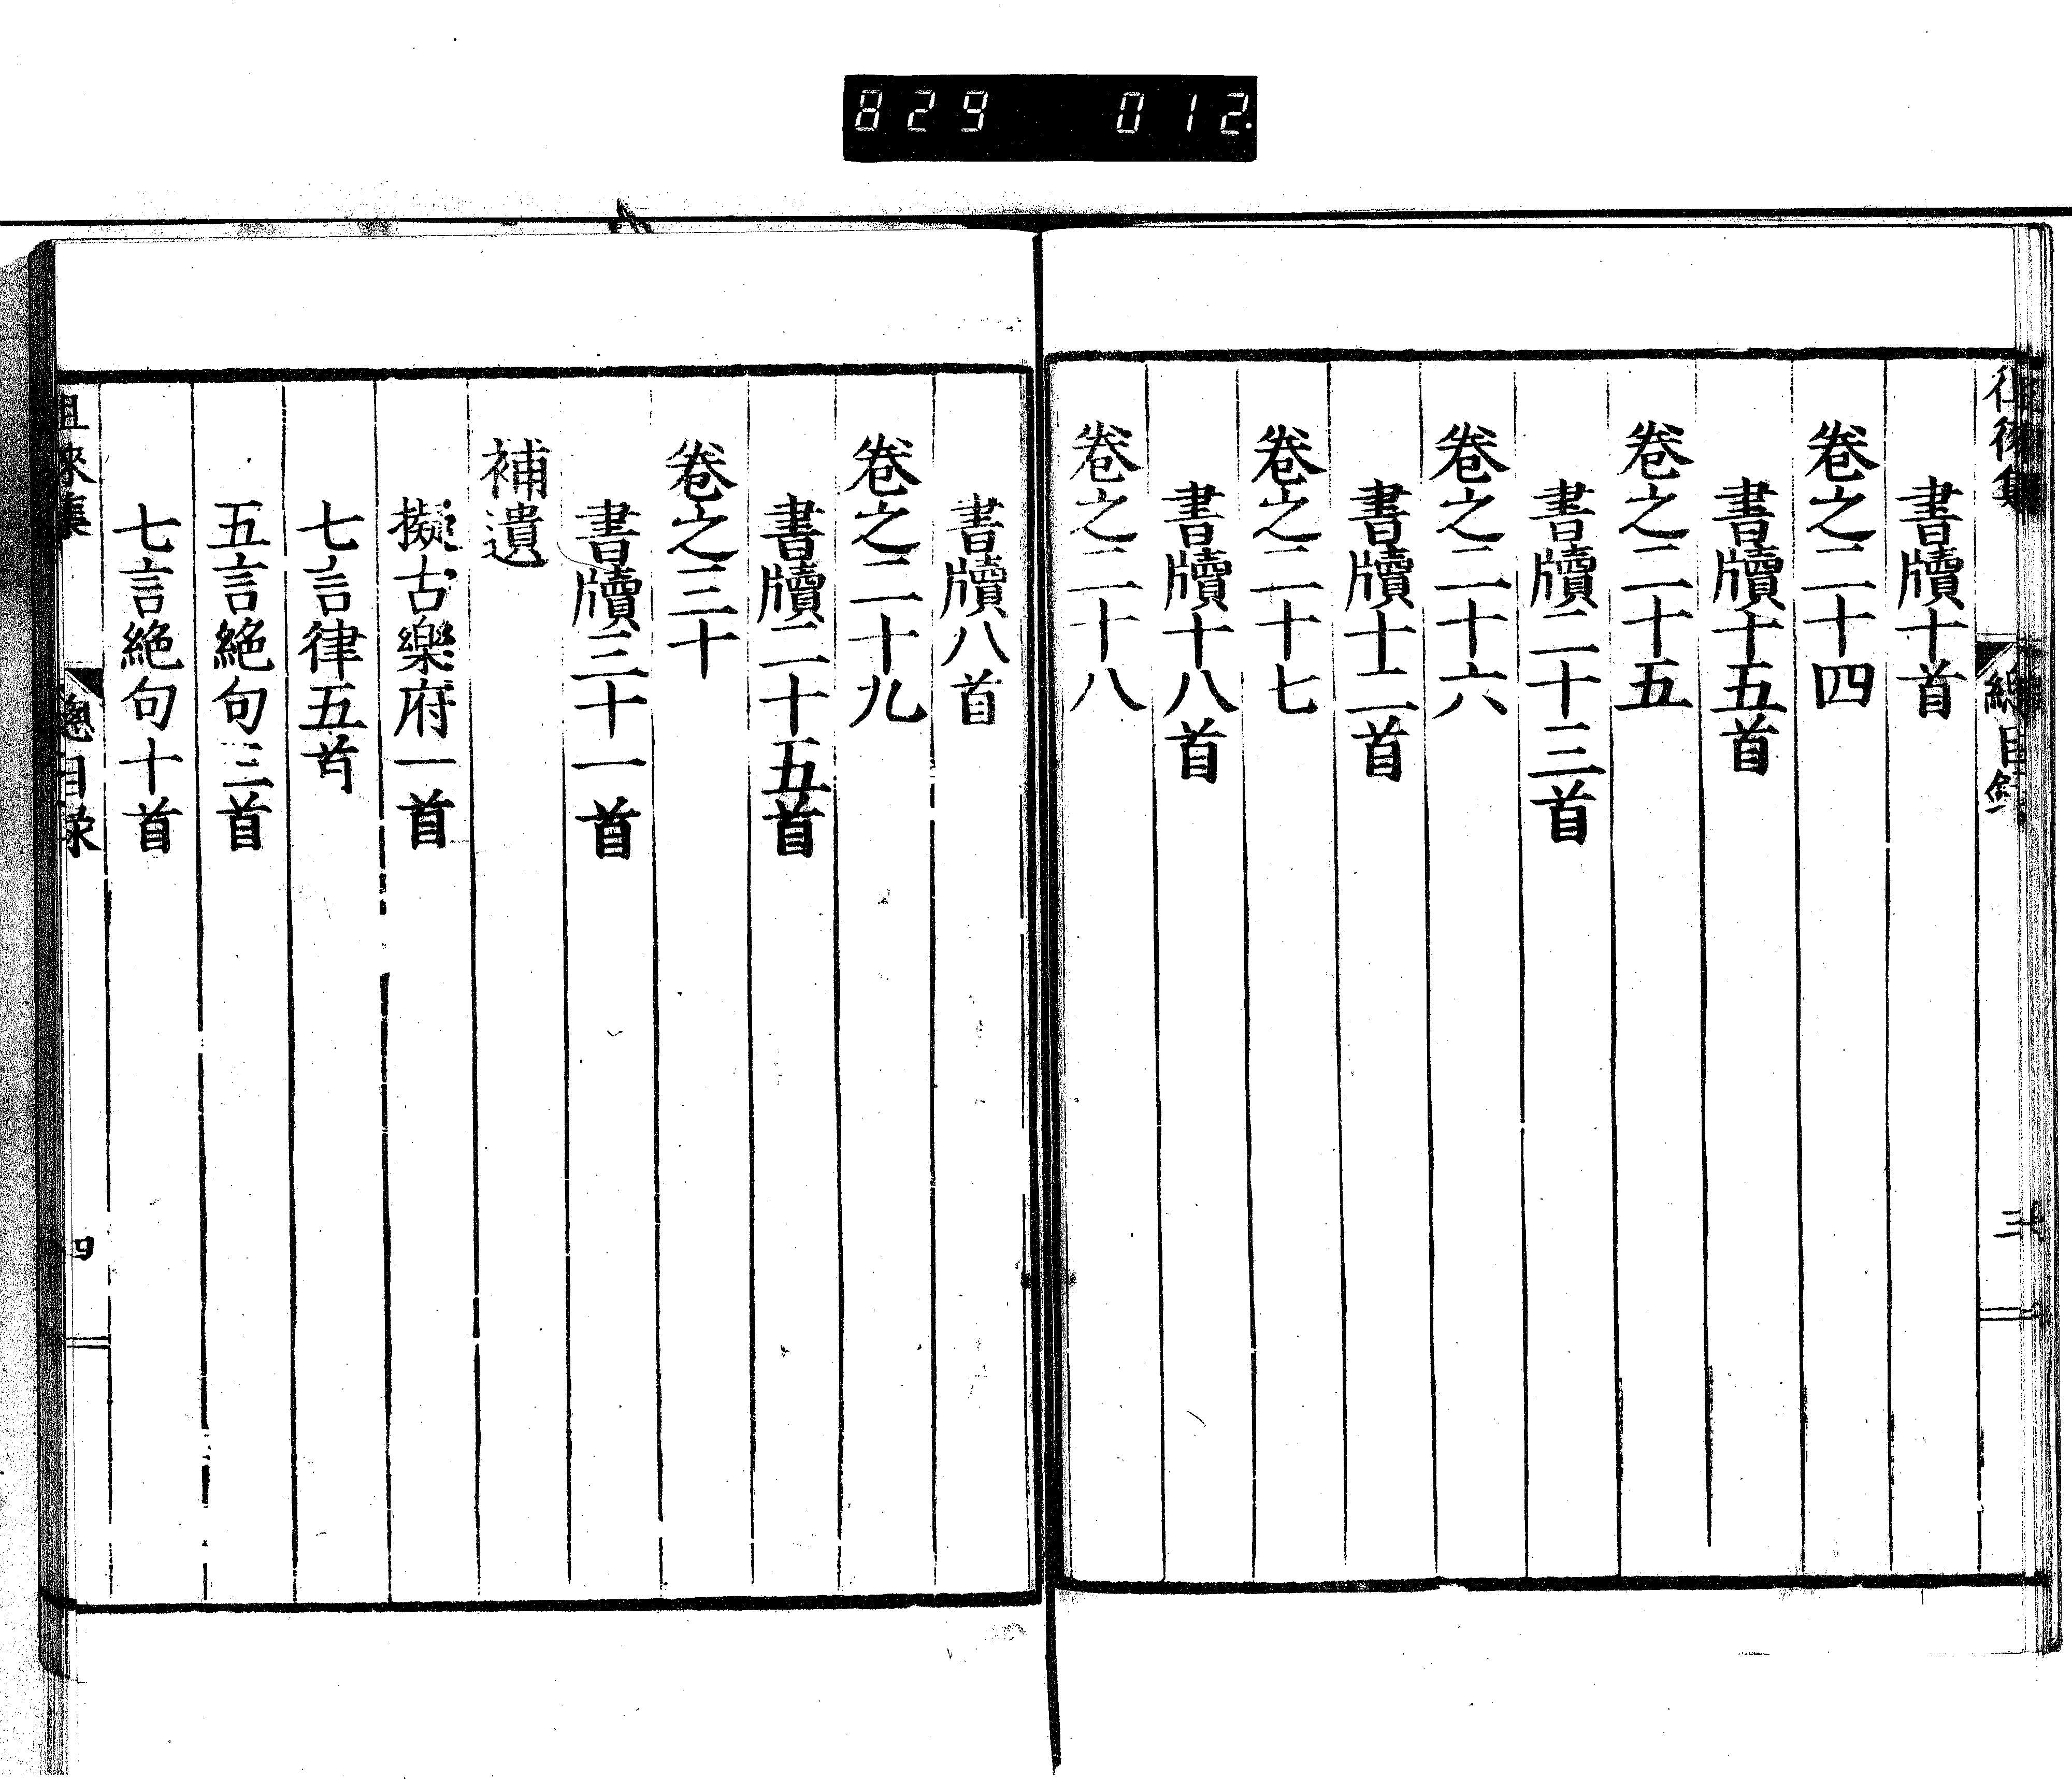 829 012
徂徠集 總目錄 三
書牘十首
卷之二十四
書牘十五首
卷之二十五
書牘二十三首
卷之二十六
書牘十二首
卷之二十七
書牘十八首
卷之二十八
書牘八首
卷之二十九
書牘二十五首
卷之三十
書牘三十一首
補遺
擬古樂府一首
七言律五首
五言絕句三首
七言絕句十首
徂徠集 總目錄 四